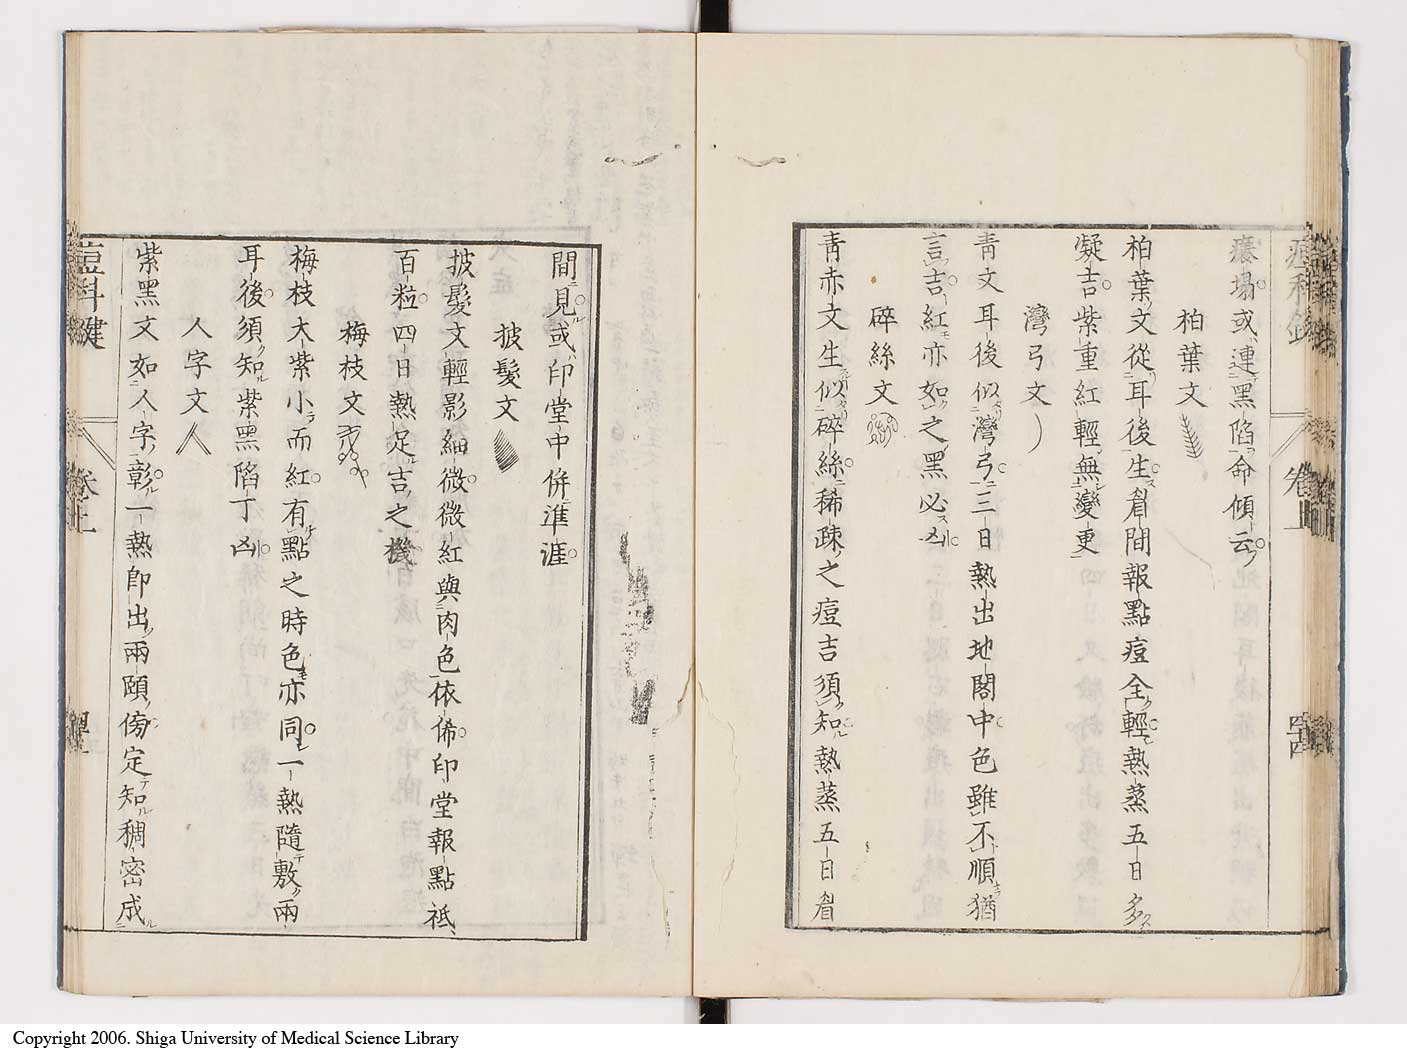 癢塌或連黑陷命傾云
柏葉文
柏葉文從耳後生眉間報點痘全輕熱蒸五日多
凝吉紫重紅輕無變更
灣弓文
青文耳後似灣弓三日熱出地閣中色雖不順猶
言吉紅亦如之黑必凶
碎絲文
青赤文生似碎絲稀疎之痘吉須知熱蒸五日眉
間見或印堂中併準涯
披髮文
披髮文輕影細微微紅與肉色依俙印堂報點祗
百粒四日熱足吉之機
梅枝文
梅枝大紫小而紅有點之時色亦同一熱隨敷兩
耳後須知紫黑陷丁凶
人字文
紫黑文如人字彰一熱即出兩頤傍定知稠密成
痘科鍵
卷上
四十四
Copyright 2006. Shiga University of Medical Science Library